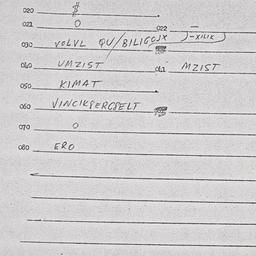 020 $
021 0 022 —
030 VOLVL QU/BILIGCJX )-XILIK)
040 UMZIST 041 MZIST
050 KIMAT
060 VINCIKSERCSELT
070 0
080 ERO